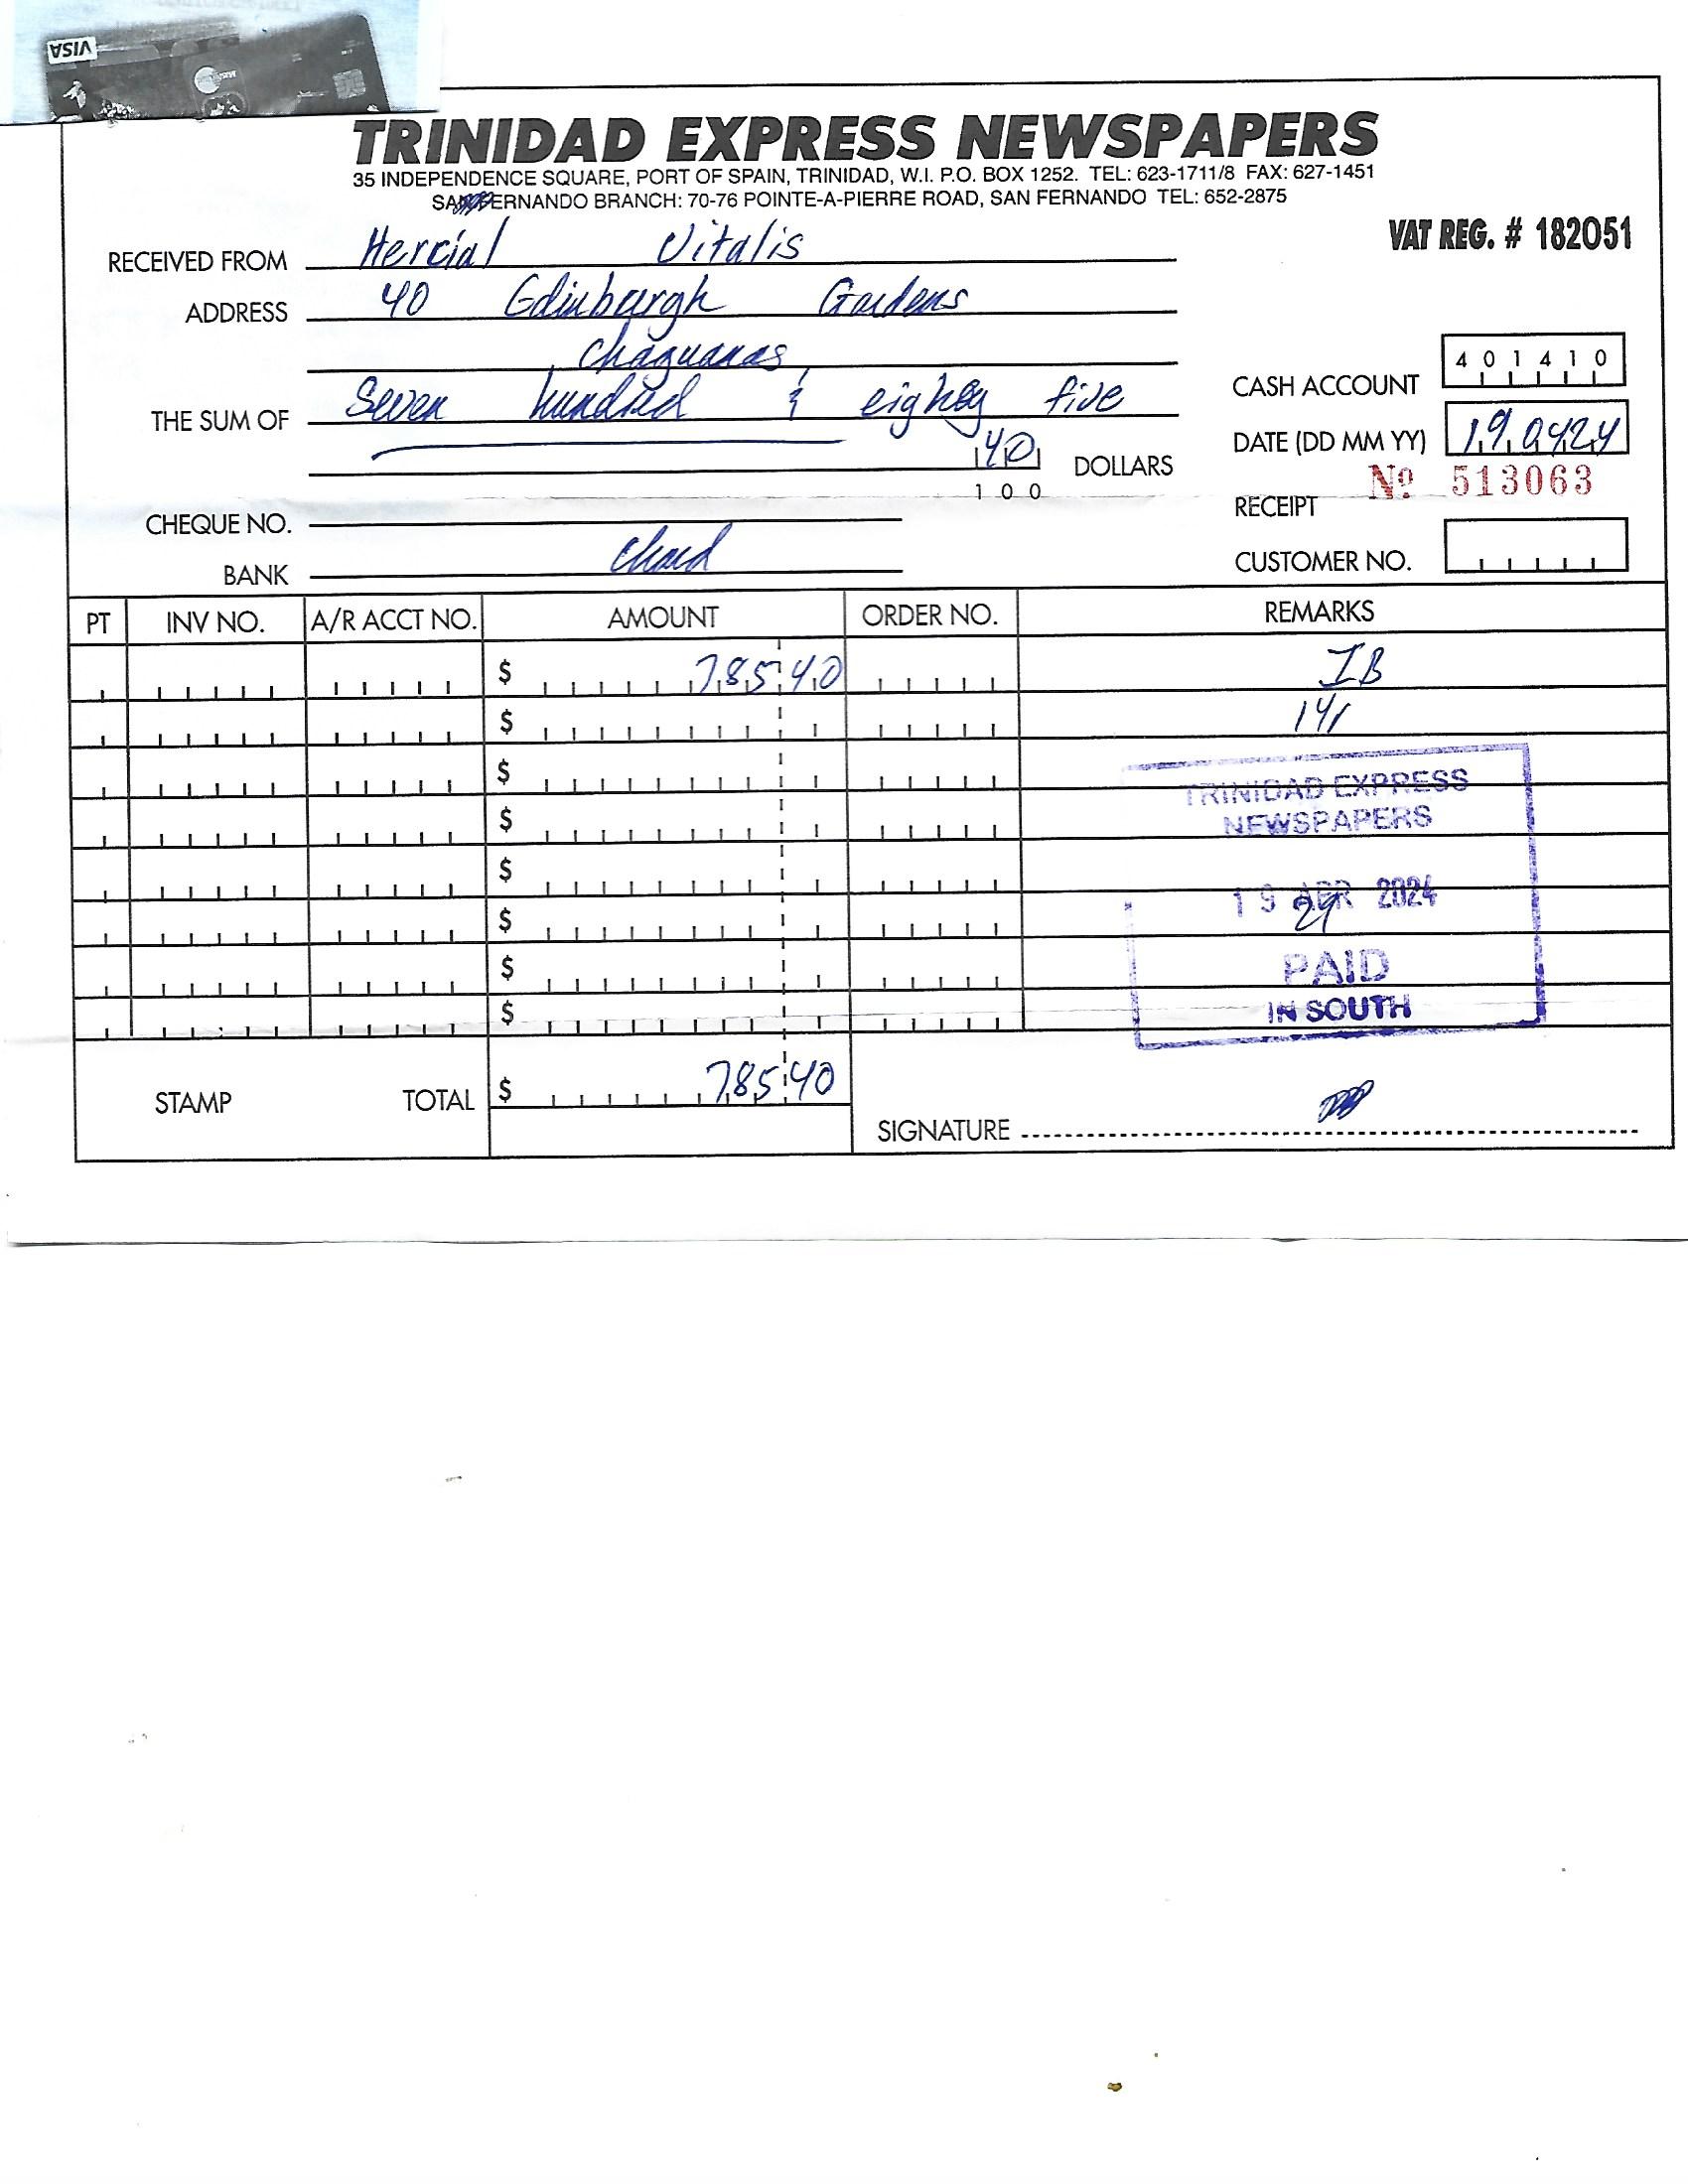 VISA
TRINIDAD EXPRESS NEWSPAPERS
35 INDEPENDENCE SQUARE, PORT OF SPAIN, TRINIDAD, W.I. P.O. BOX 1252. TEL: 623-1711/8 FAX: 627-1451
SAN FERNANDO BRANCH: 70-76 POINTE-A-PIERRE ROAD, SAN FERNANDO TEL: 652-2875
VAT REG. # 182051
RECEIVED FROM Hercial Vitalis
ADDRESS 40 Edinburgh Gardens
Chaguanas
CASH ACCOUNT 401410
THE SUM OF Seven hundred & eighty five
DATE (DD MM YY) 190424
40 DOLLARS
100
RECEIPT Nº 513063
CHEQUE NO.
CUSTOMER NO.
BANK
PT INV NO. A/R ACCT NO. AMOUNT ORDER NO. REMARKS
$ 785.40 IB
$ 141
$
TRINIDAD EXPRESS
$
NEWSPAPERS
$
19 APR 2024
$
$
PAID
$
IN SOUTH
STAMP TOTAL $ 785.40
SIGNATURE